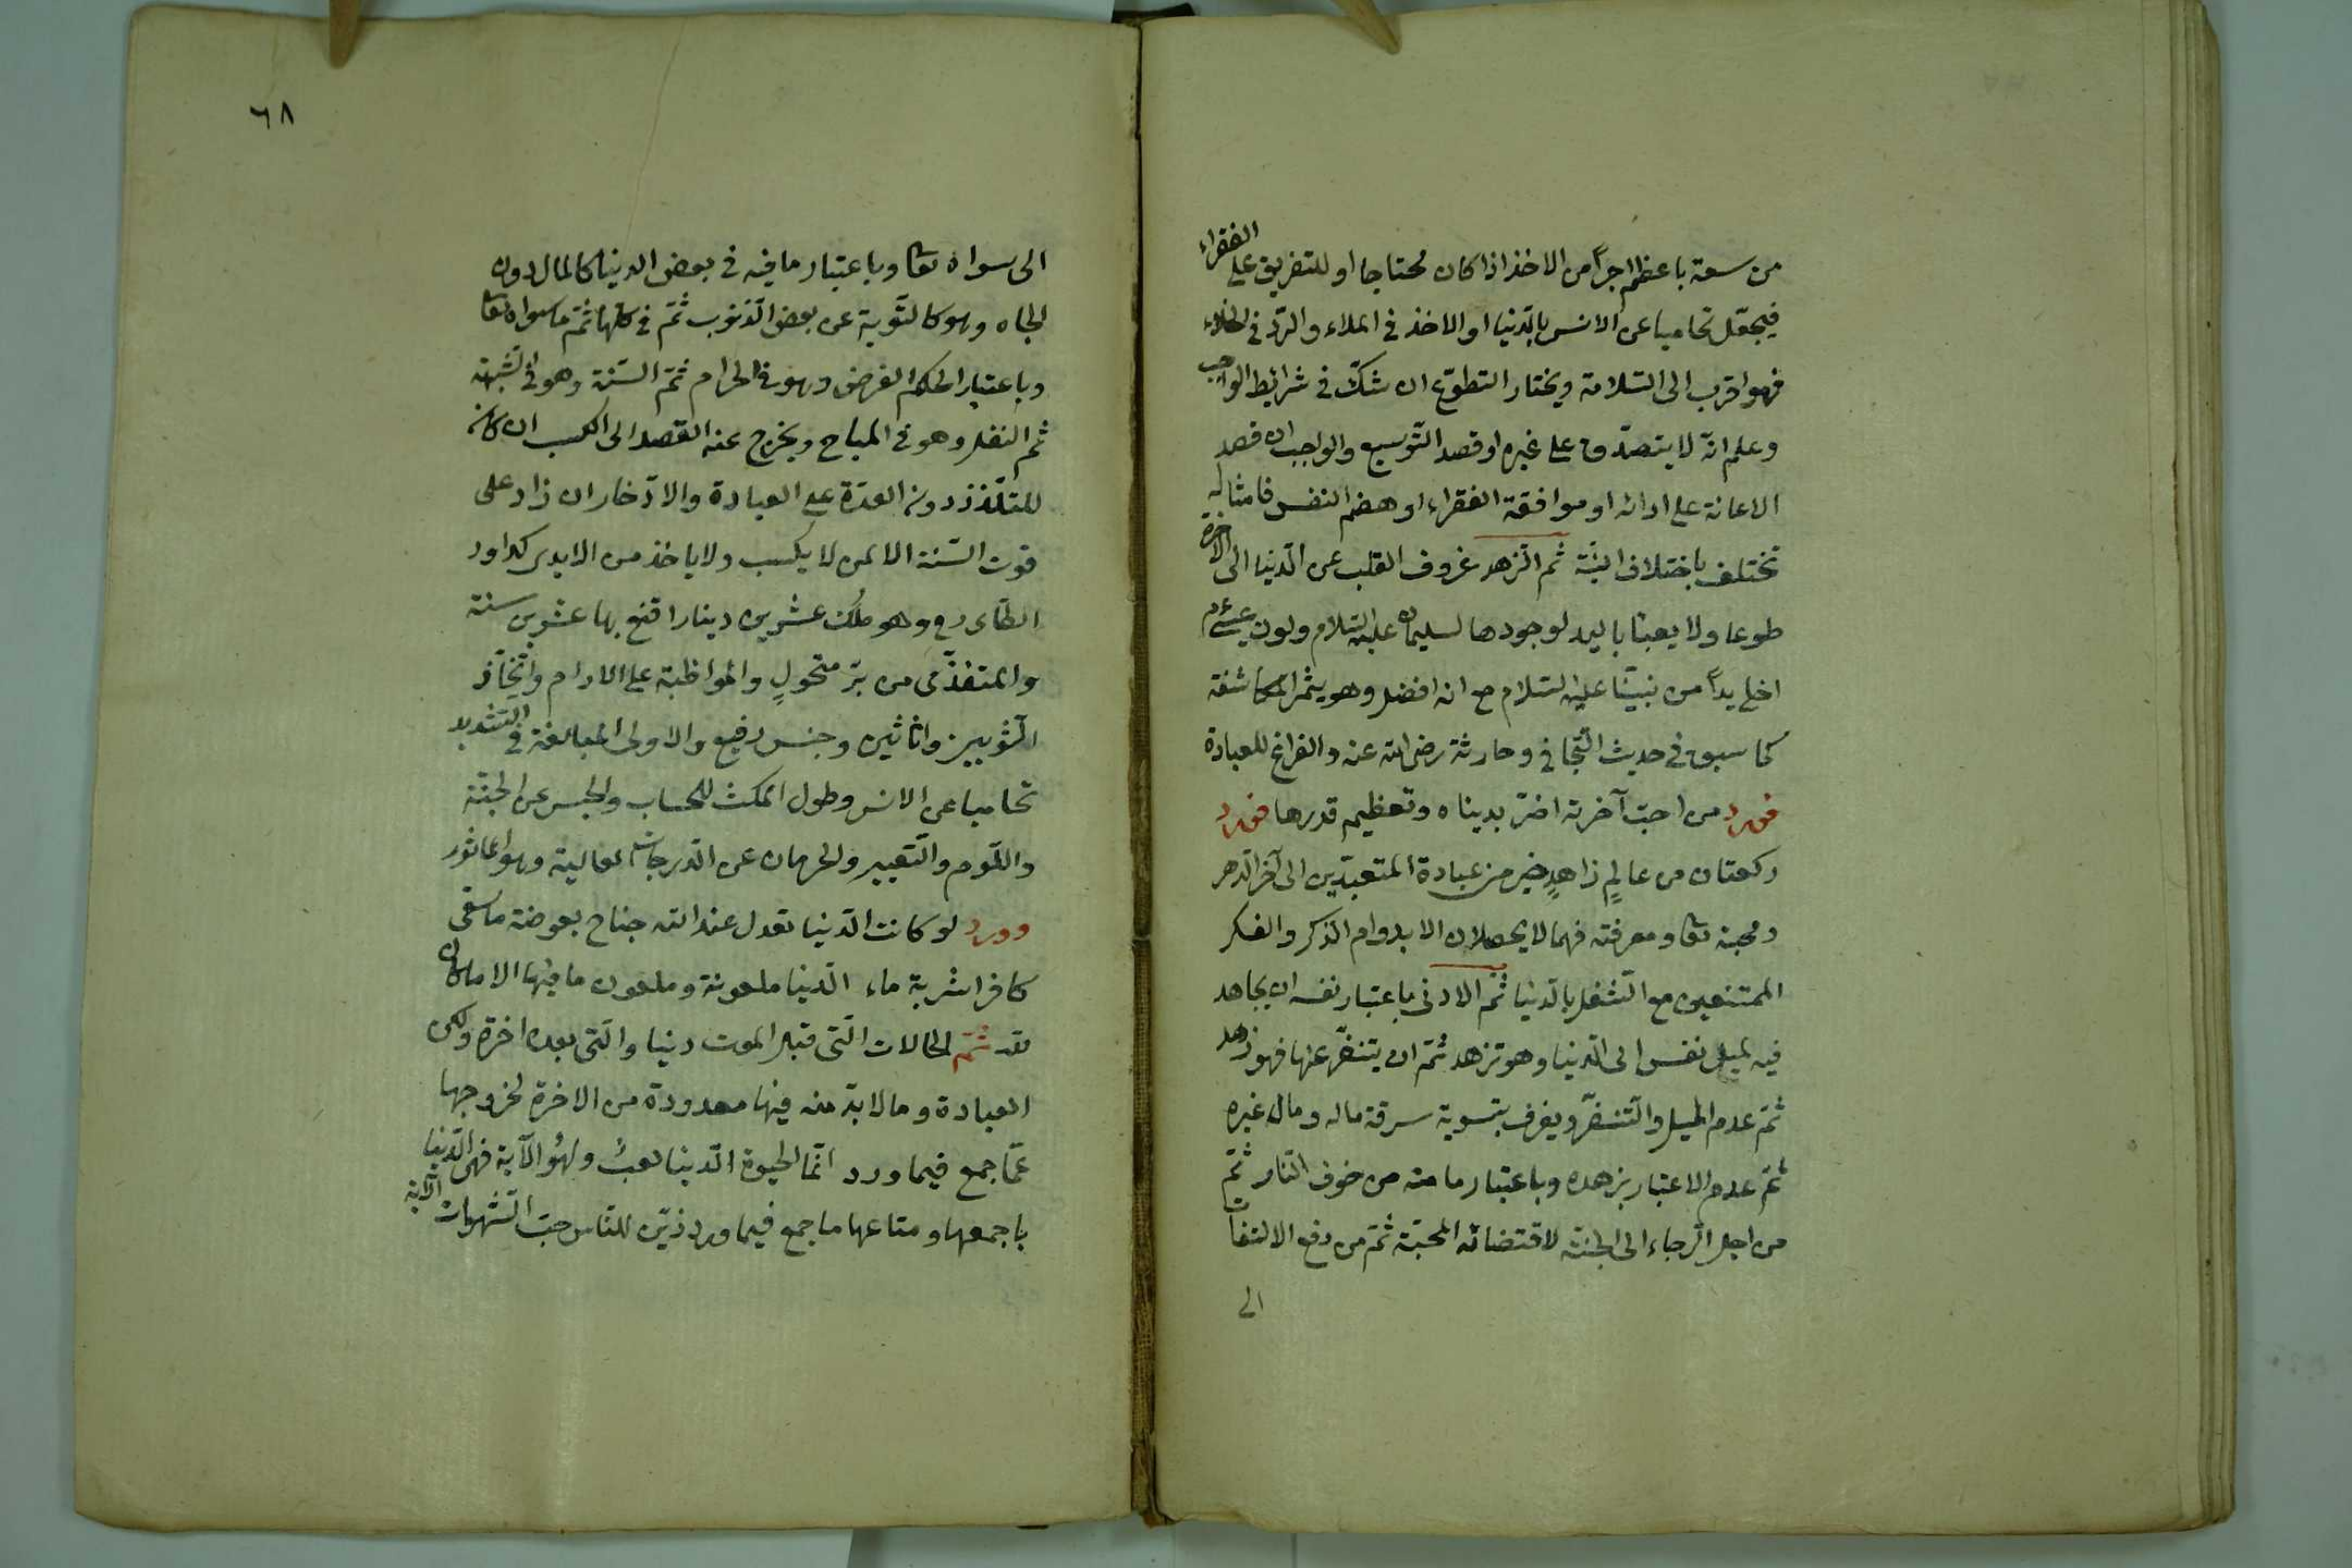 من سعة باعظم اجراً من الاخذ اذا كان محتاجا او للتفريق على الفقراء
فيجعل تحاميا عن الانس بالدنيا او الاخذ فى الملاء والرد فى الخلاء
فهو اقرب الى السلامة ويختار التطوع ان شك فى شرائط الواجب
وعلم انه لا يتصدق على غيره او قصد التوسيع والواجب ان قصد
الاعانة على ادائه او موافقة الفقراء او هضم النفس فامثاله
تختلف باختلاف النية ثم الزهد عزوف القلب عن الدنيا الى الآخرة
طوعا ولا يعبأ باليد لوجودها لسليمان عليه السلام وكون عيسى عم
اخلى يداً من نبينا عليه السلام مع انه افضل وهو يثمر المكاشفة
كما سبق فى حديث التجافى وحارثة رضى الله عنه والفراغ للعبادة
فورد من احب آخرته اضر بدنياه وتعظيم قدرها فورد
ركعتان من عالمٍ زاهدٍ خير من عبادة المتعبدين الى آخر الدهر
ومحبته تعا ومعرفته فهما لا يحصلان الا بدوام الذكر والفكر
الممتنعين مع الشغل بالدنيا ثم الادنى باعتبار نفسه ان يجاهد
فيه لميل نفسه الى الدنيا وهو تزهد ثم ان يتنفر عنها فهو زهد
ثم عدم الميل والتنفر ويعرف بتسوية سرقة ماله ومال غيره
ثم عدم الاعتبار بزهده وباعتبار ما منه من خوف النار ثم
من اجل الرجاء الى الجنة لاقتضائه المحبة ثم من رفع الالتفات
الى
٦٨
الى سواه تعا وباعتبار ما فيه فى بعض الدنيا كالمال دون
الجاه وهو كالتوبة عن بعض الذنوب ثم فى كلها ثم ما سواه تعا
وباعتبار الحكم الفرض وهو فى الحرام ثم السنة وهو فى الشبهة
ثم النفل وهو فى المباح ويخرج عنه القصد الى الكسب ان كان
للتلذذ دون القدرة على العبادة والادخار ان زاد على
قوت السنة الا لمن لا يكسب ولا ياخذ من الايدى كداود
الطائى رح وهو ملك عشرين دينارا قنع بها عشرين سنة
والتغذى من بر منخولٍ والمواظبة على الادام واتخاذ
الثوبين واثاثين وجنس رفيع والاولى المبالغة فى التشديد
تحاميا عن الانس وطول المكث للحساب والحبس عن الجنة
واللوم والتعيير والحرمان عن الدرجات العالية وهو الماثور
وورد لو كانت الدنيا تعدل عند الله جناح بعوضة ما سقى
كافرا شربة ماء الدنيا ملعونة وملعون ما فيها الا ما كان
لله ثم الحالات التى قبل الموت دنيا والتى بعده اخرة ولكن
العبادة وما لا بد منه فيها معدودة من الاخرة لخروجها
عما جمع فيما ورد انما الحيوة الدنيا لعبٌ ولهوٌ الآية فهى الدنيا
باجمعها ومتاعها ما جمع فيما ورد زين للناس حب الشهوات الآية